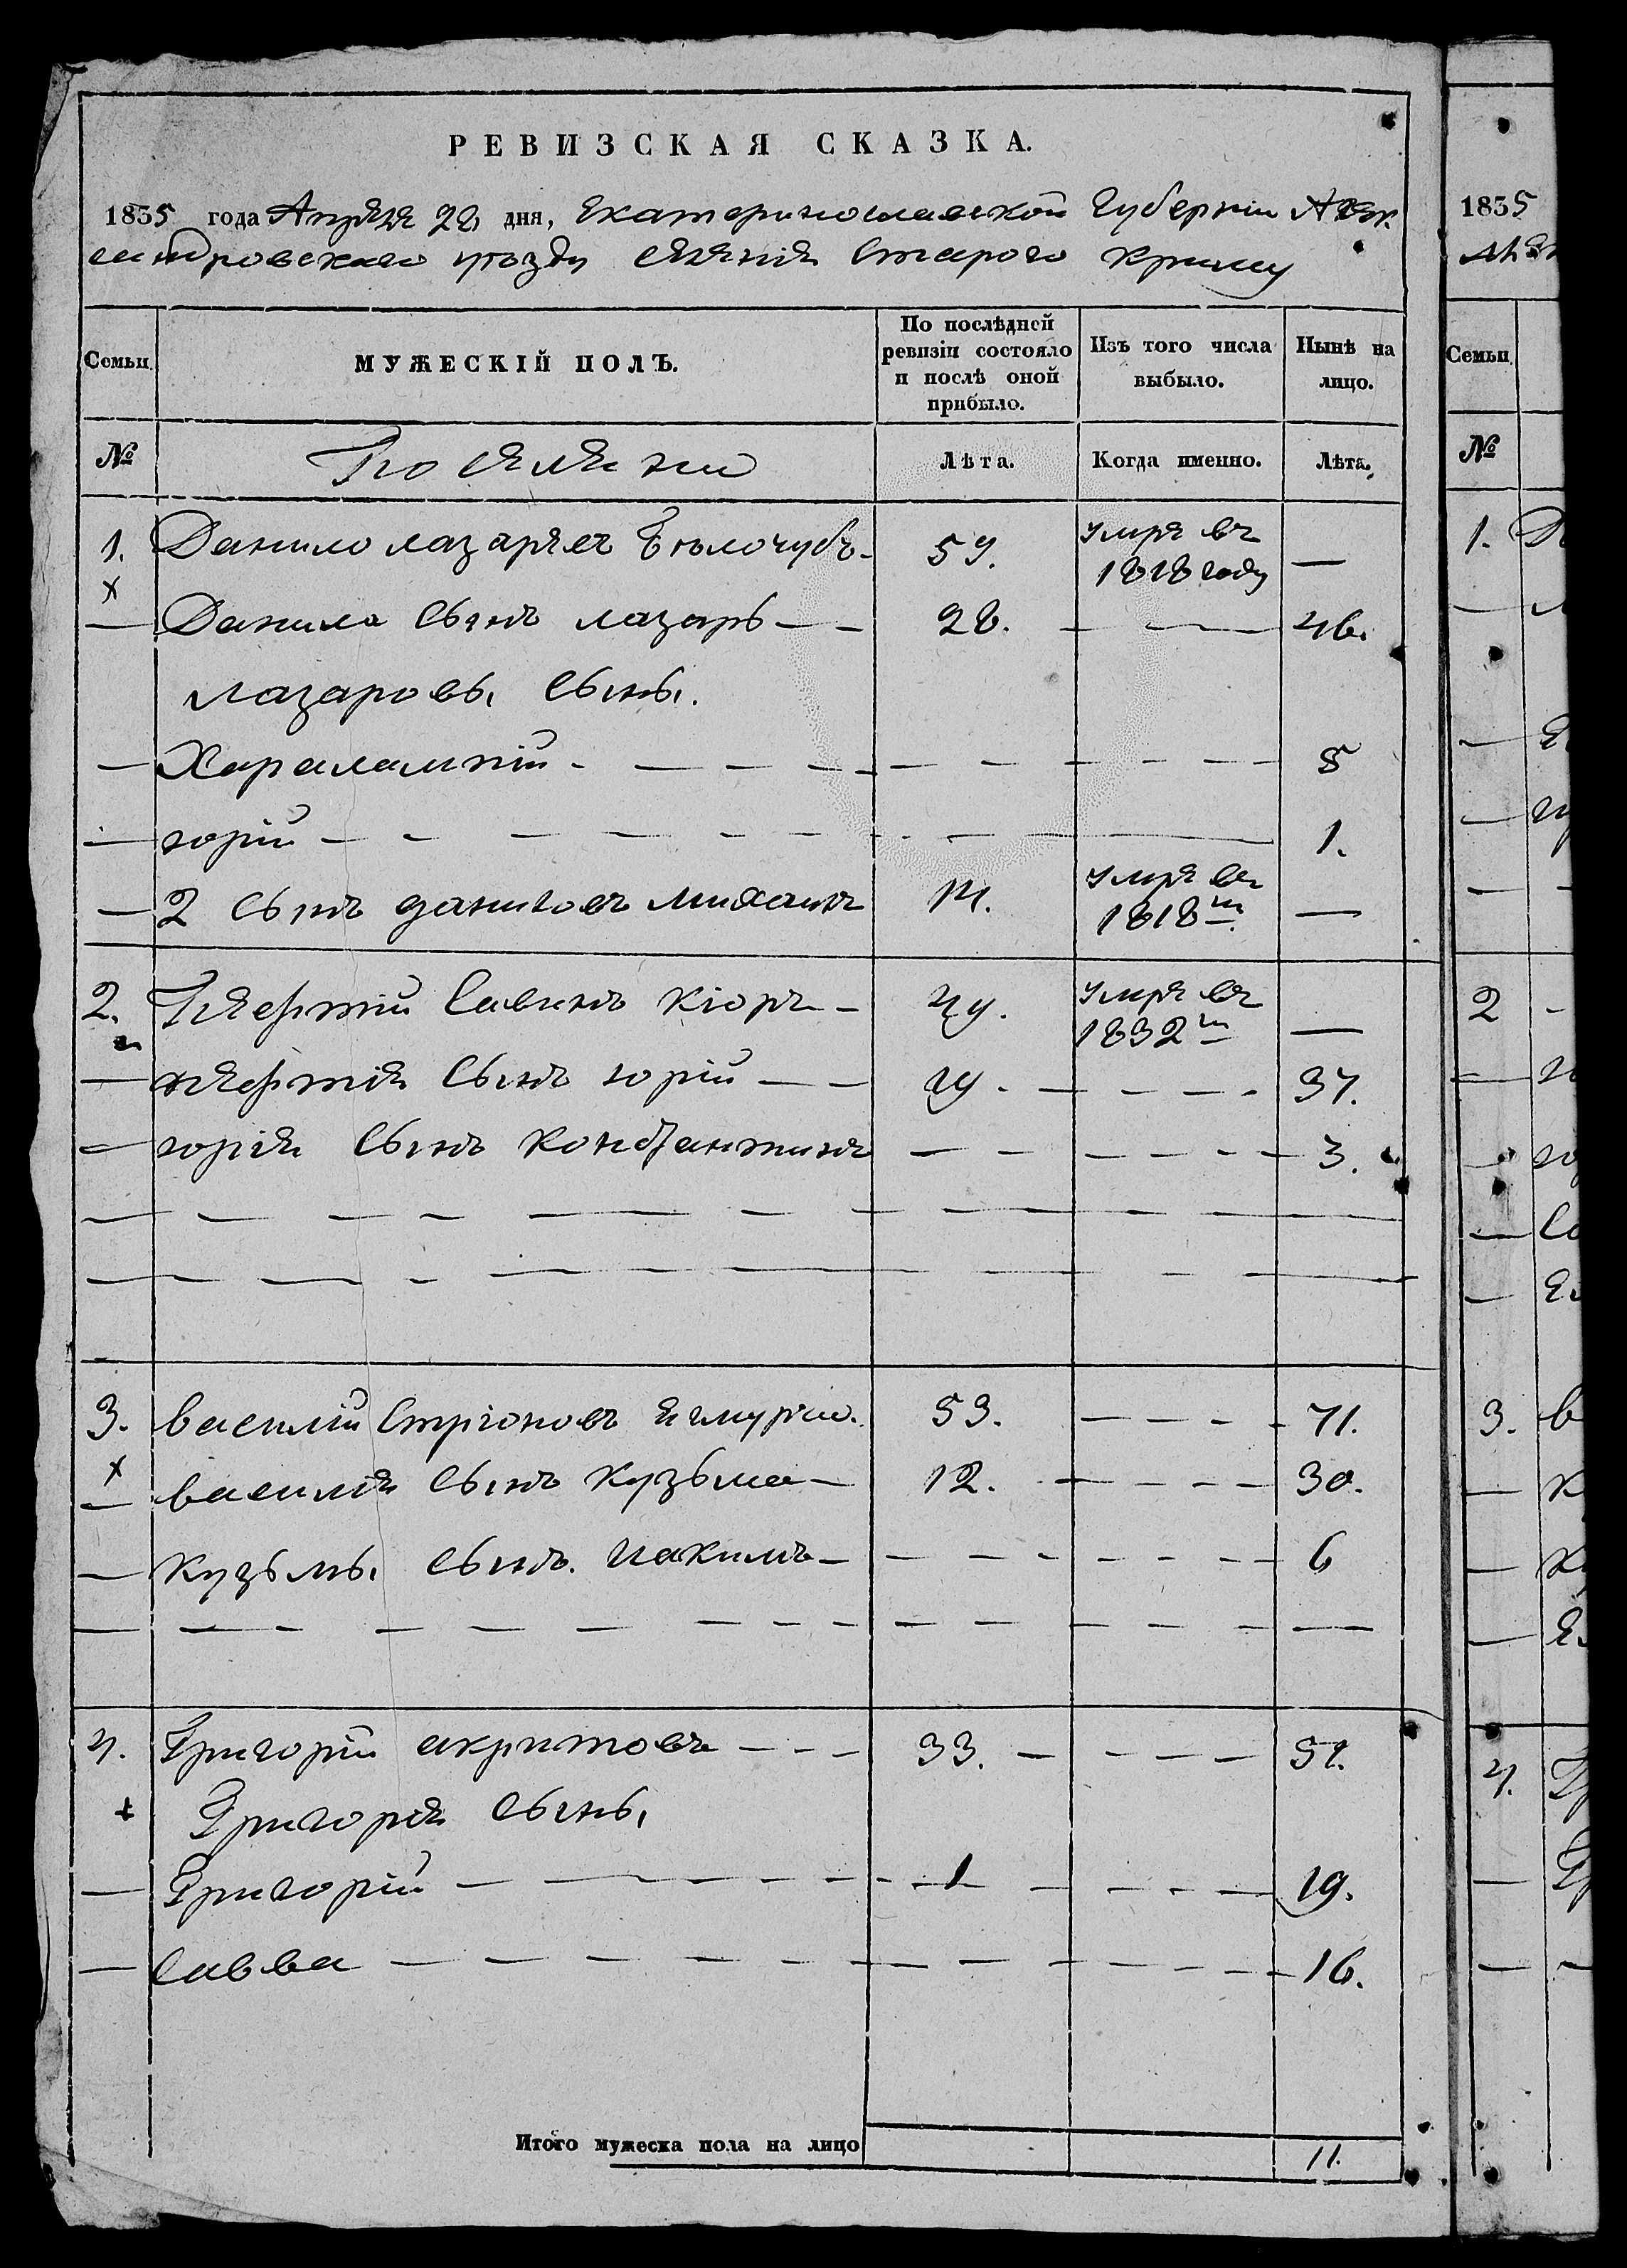 РЕВИЗСКАЯ СКАЗКА.
1835 года Апреля 28 дня, Екатеринославской Губернiи Алек
сандровскаго уѣзду селенiя Старого Крыму
Семьи.
МУЖЕСКІЙ ПОЛЪ.
По послѣдней ревизіи состояло и послѣ оной прибыло.
Изъ того числа выбыло.
Нынѣ на лицо.
№
Поселяни
Лѣта.
Когда именно.
Лѣта.
1. Данило лазаревъ Бѣлочубъ 59. умре въ 1818 году —
Данила Сынъ лазарь 28. 46.
лазаровы Сыны.
Харалампiй 5
юрiй 1.
2 Сынъ даниловъ Михаилъ 14. умре въ 1818 м —
2. Савинъ Кiоръ 49. умре въ 1832 м —
Сынъ юрiй 19. 37.
юрiя Сынъ Константинъ 3.
3. Василiй Стрiоновъ 53. 71.
Василiя Сынъ Кузьма 12. 30.
Кузьмы Сынъ. Иакимъ 6
4. Григорiй акритовъ 33. 51.
Григорiя Сыны
Григорiй 1 19.
Савва 16.
Итого мужеска пола на лицо 11.
1835
Семьи
№
1.
2
3.
4.